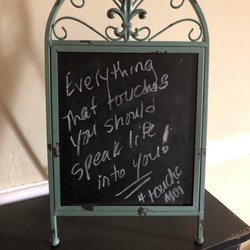 Everything
that touches
you should
speak life
into you!
# touche